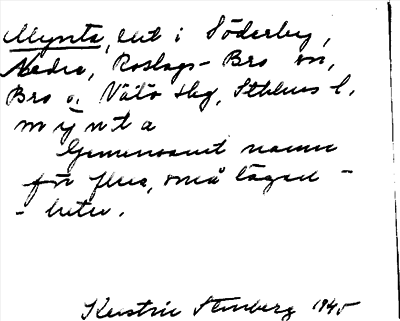 Mynta, ent i Söderby,
Nedra, Roslags-Bro sn,
Bro o. Vätö skg, Sthlms l.
mynta
Gemensamt namn
för flera, små lägen-
-heter.
Kerstin Stenberg 1945